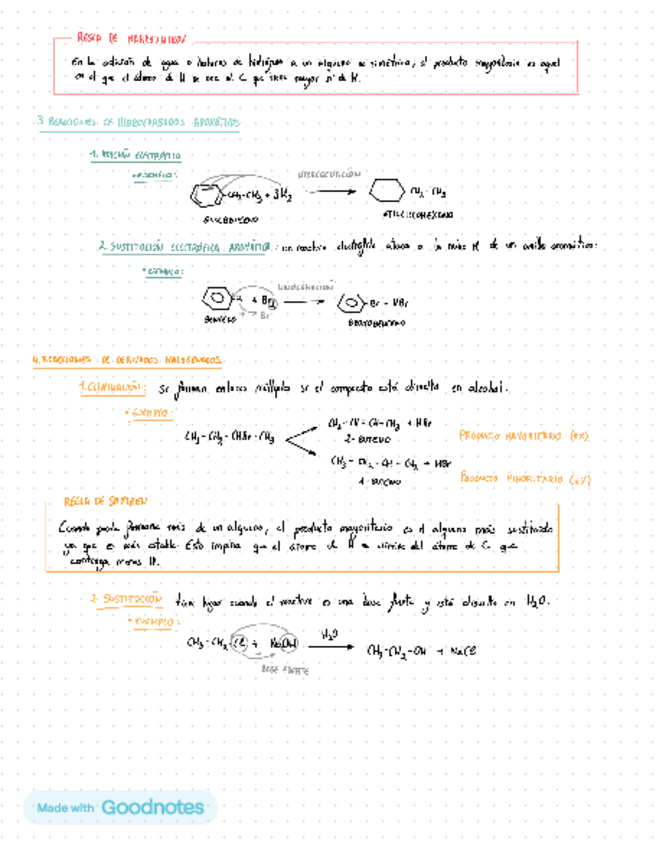 REGLA DE MARKOVNIKOV
En la adición de agua o haluros de hidrógeno a un alqueno no simétrico, el producto mayoritario es aquel
en el que el átomo de H se une al C que tiene mayor nº de H.
3. REACCIONES DE HIDROCARBUROS AROMÁTICOS
1. ADICIÓN ELECTRÓFILA
• EJEMPLO:
HIDROGENACIÓN
CH2-CH3 + 3H2
CH2-CH3
ETILBENCENO
ETILCICLOHEXANO
2. SUSTITUCIÓN ELECTRÓFILA AROMÁTICA: un reactivo electrófilo ataca a H de un anillo aromático:
• EJEMPLO:
HALOGENACIÓN
+ Br2
Br + HBr
Br
BENCENO
BROMOBENCENO
4. REACCIONES DE DERIVADOS HALOGENADOS
1. ELIMINACIÓN: se forman enlaces múltiples si el compuesto está disuelto en alcohol.
• EJEMPLO:
CH3-CH=CH-CH3 + HBr
CH3-CH2-CHBr-CH3
2-BUTENO
PRODUCTO MAYORITARIO
CH3-CH2-CH=CH2 + HBr
PRODUCTO MINORITARIO
1-BUTENO
REGLA DE SAYTZEV
Cuando puede formarse más de un alqueno, el producto mayoritario es el alqueno más sustituido
ya que es más estable. Esto implica que el átomo de H se elimina del átomo de C que
contenga menos H.
2. SUSTITUCIÓN tiene lugar cuando el reactivo es una base fuerte y está disuelto en H2O.
• EJEMPLO:
CH3-CH2-Cl + NaOH
H2O
CH3-CH2-OH + NaCl
BASE FUERTE
Made with Goodnotes